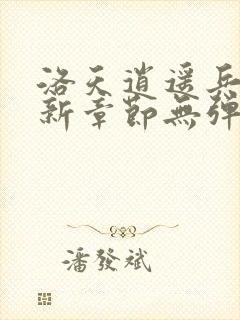 洛天逍遥兵
新章節無彈
潘發斌